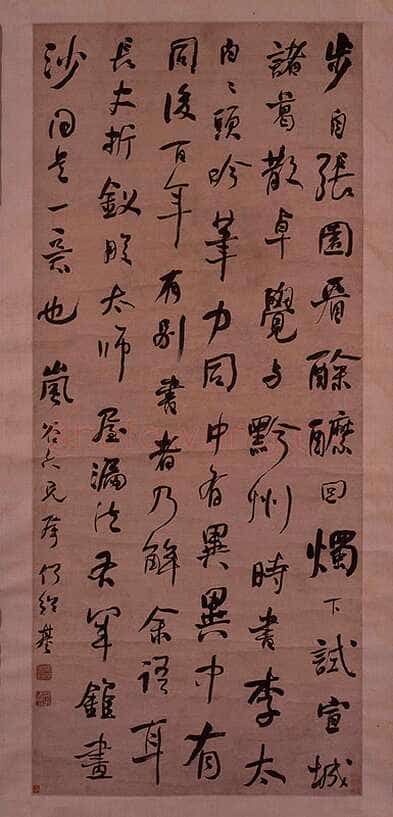 步自張園看酴醾回燭下試宣城
諸葛散卓覺与黔州時書李太
白〻頭吟筆力同中有異異中有
同後百年有別書者乃解余語耳
長史折釵股太師屋漏法右軍錐畫
沙同是一意也 嵐谷六兄屬 何紹基